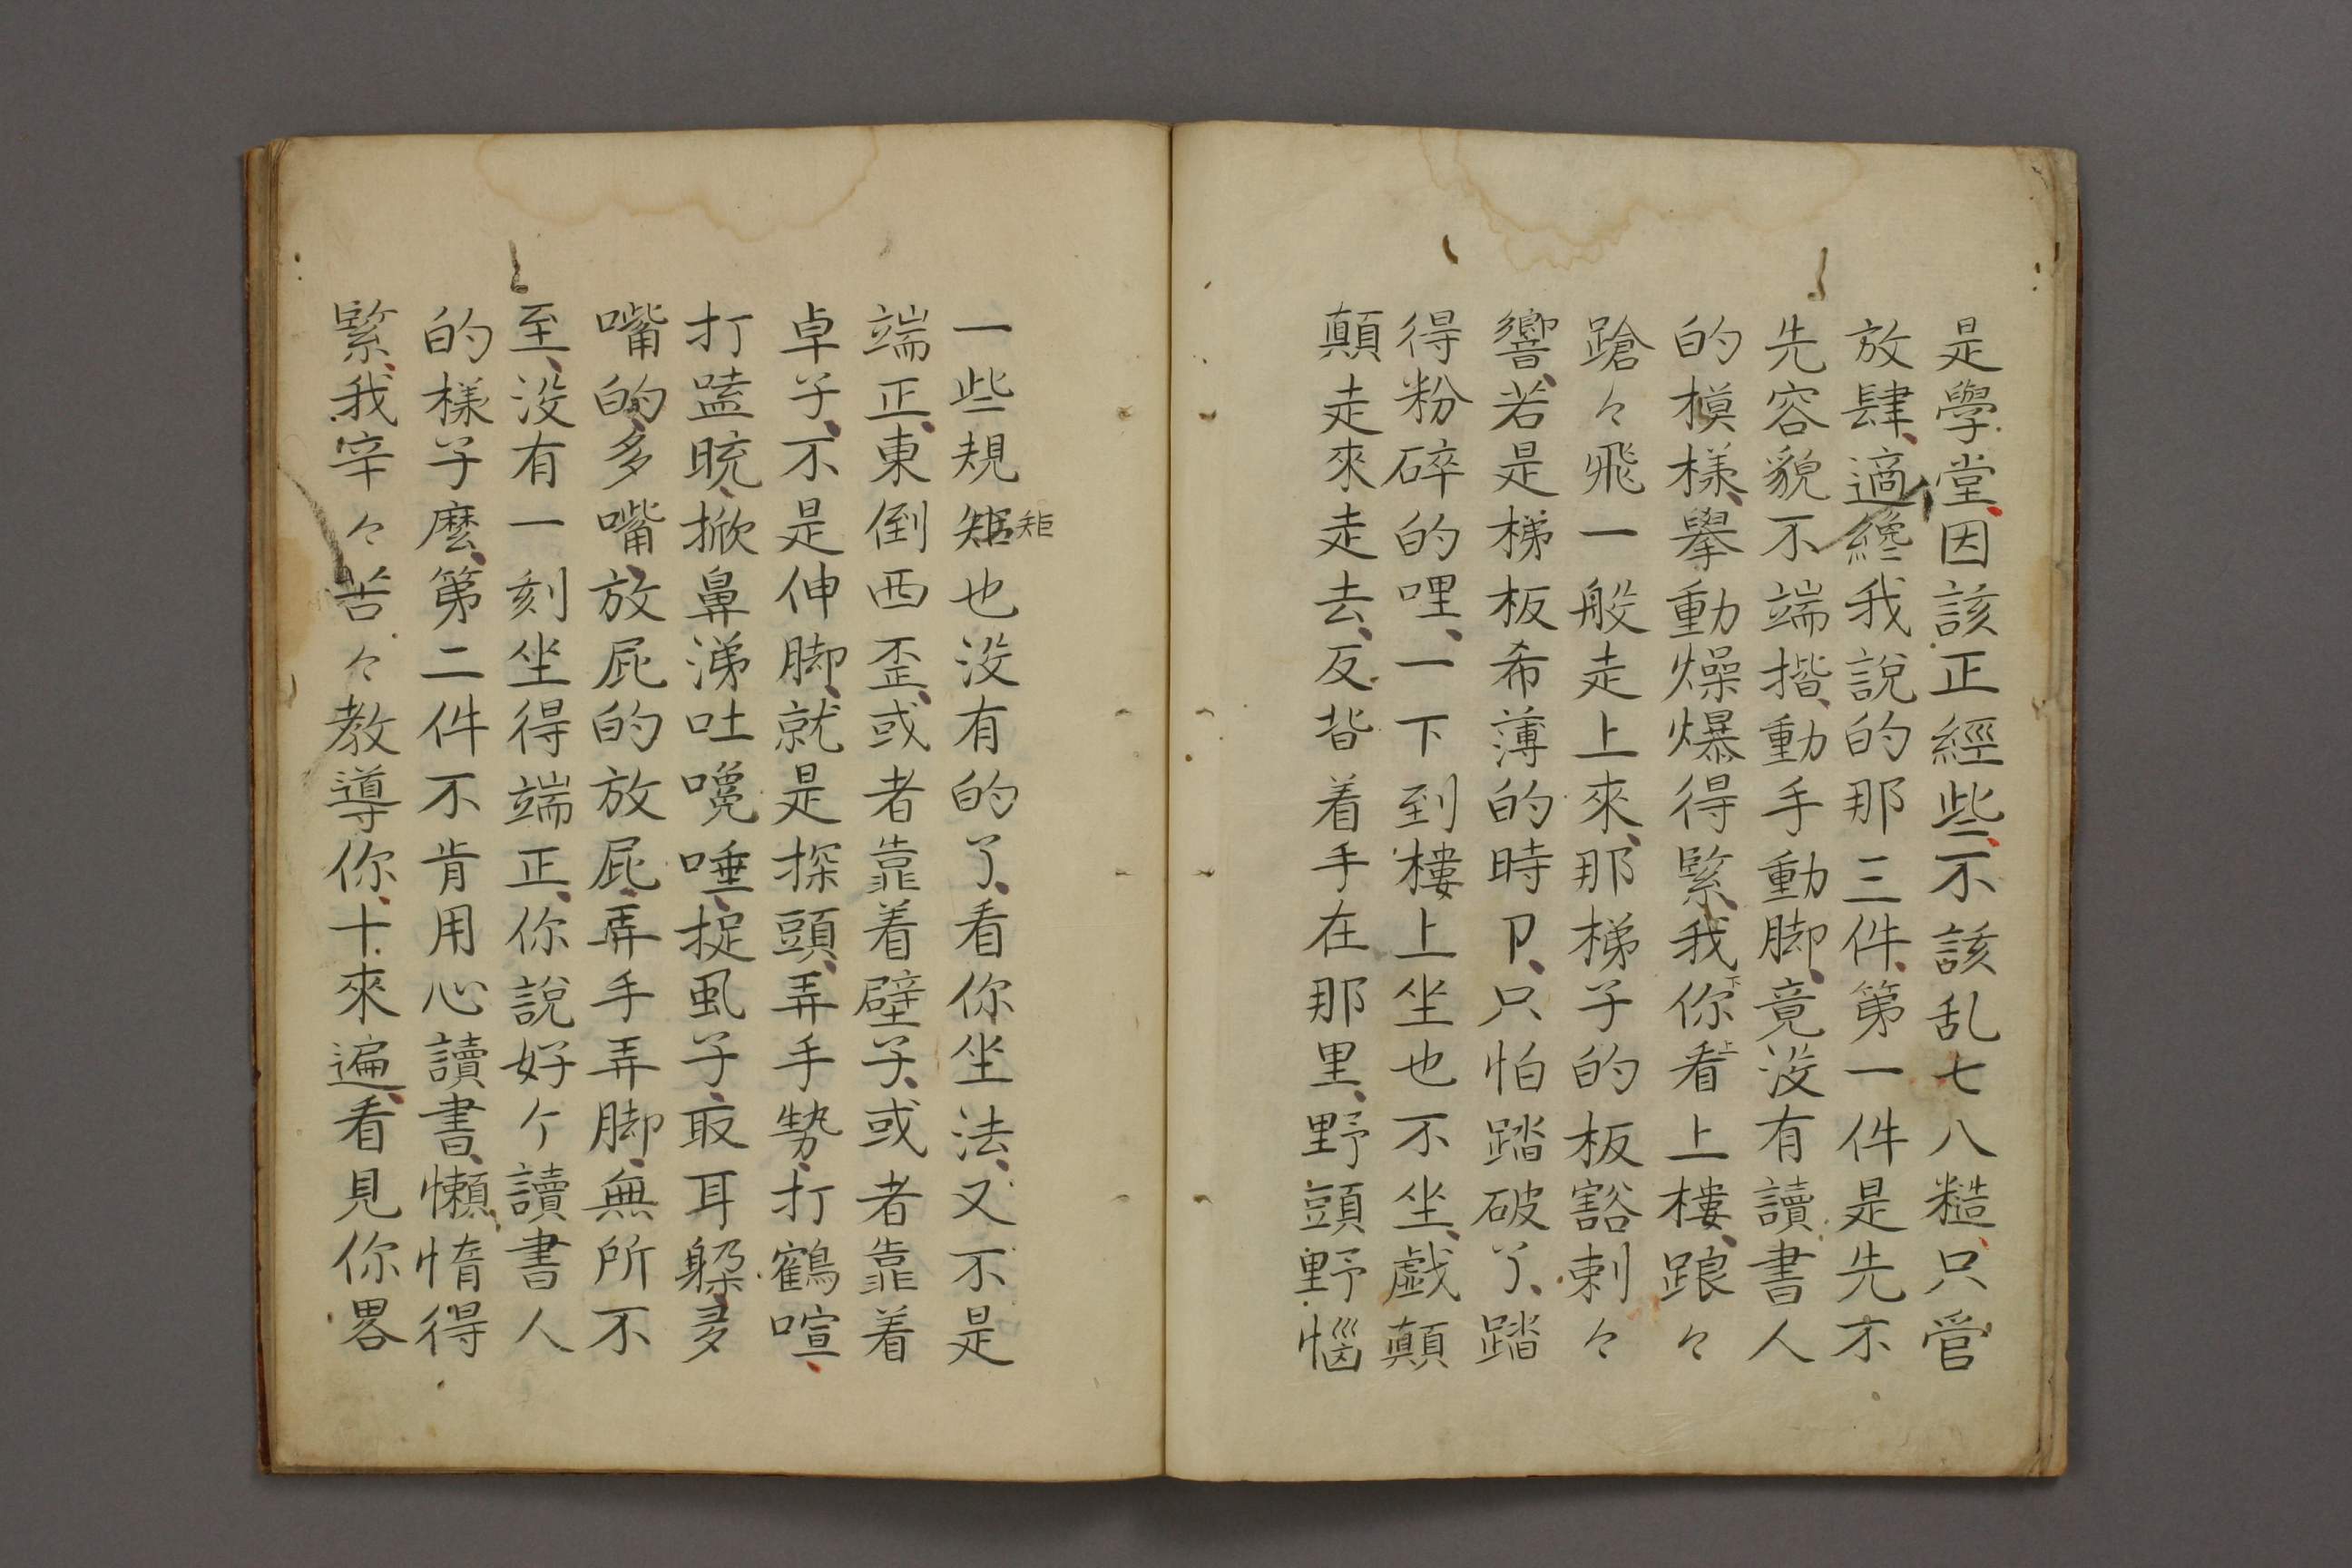 是學堂、因該正經些、不該乱七八糙、只管
放肆、適纔我說的那三件、第一件是先不
先容貌不端揩、動手動脚、竟没有讀書人
的模樣、擧動燥爆得緊、我你看上樓、踉々
蹌々飛一般走上來、那梯子的板豁剌々
響、若是梯板希薄的時卩、只怕踏破了、踏
得粉碎的哩、一下到樓上坐也不坐、戱顛
顛走來走去、反背着手在那里、野頭野惱
一些規矩也没有的了、看你坐法、又不是
矩
端正、東倒西歪、或者靠着壁子、或者靠着
卓子、不是伸脚、就是探頭、弄手勢、打鶴喧、
打嗑晥、掀鼻涕吐嚵唾、捉虱子、取耳躱、多
嘴的多嘴、放屁的放屁、弄手弄脚、無所不
至、没有一刻坐得端正、你說好个讀書人
的樣子麽、第二件不肯用心讀書、懶惰得
緊、我辛々苦々教導你、十來遍、看見你畧